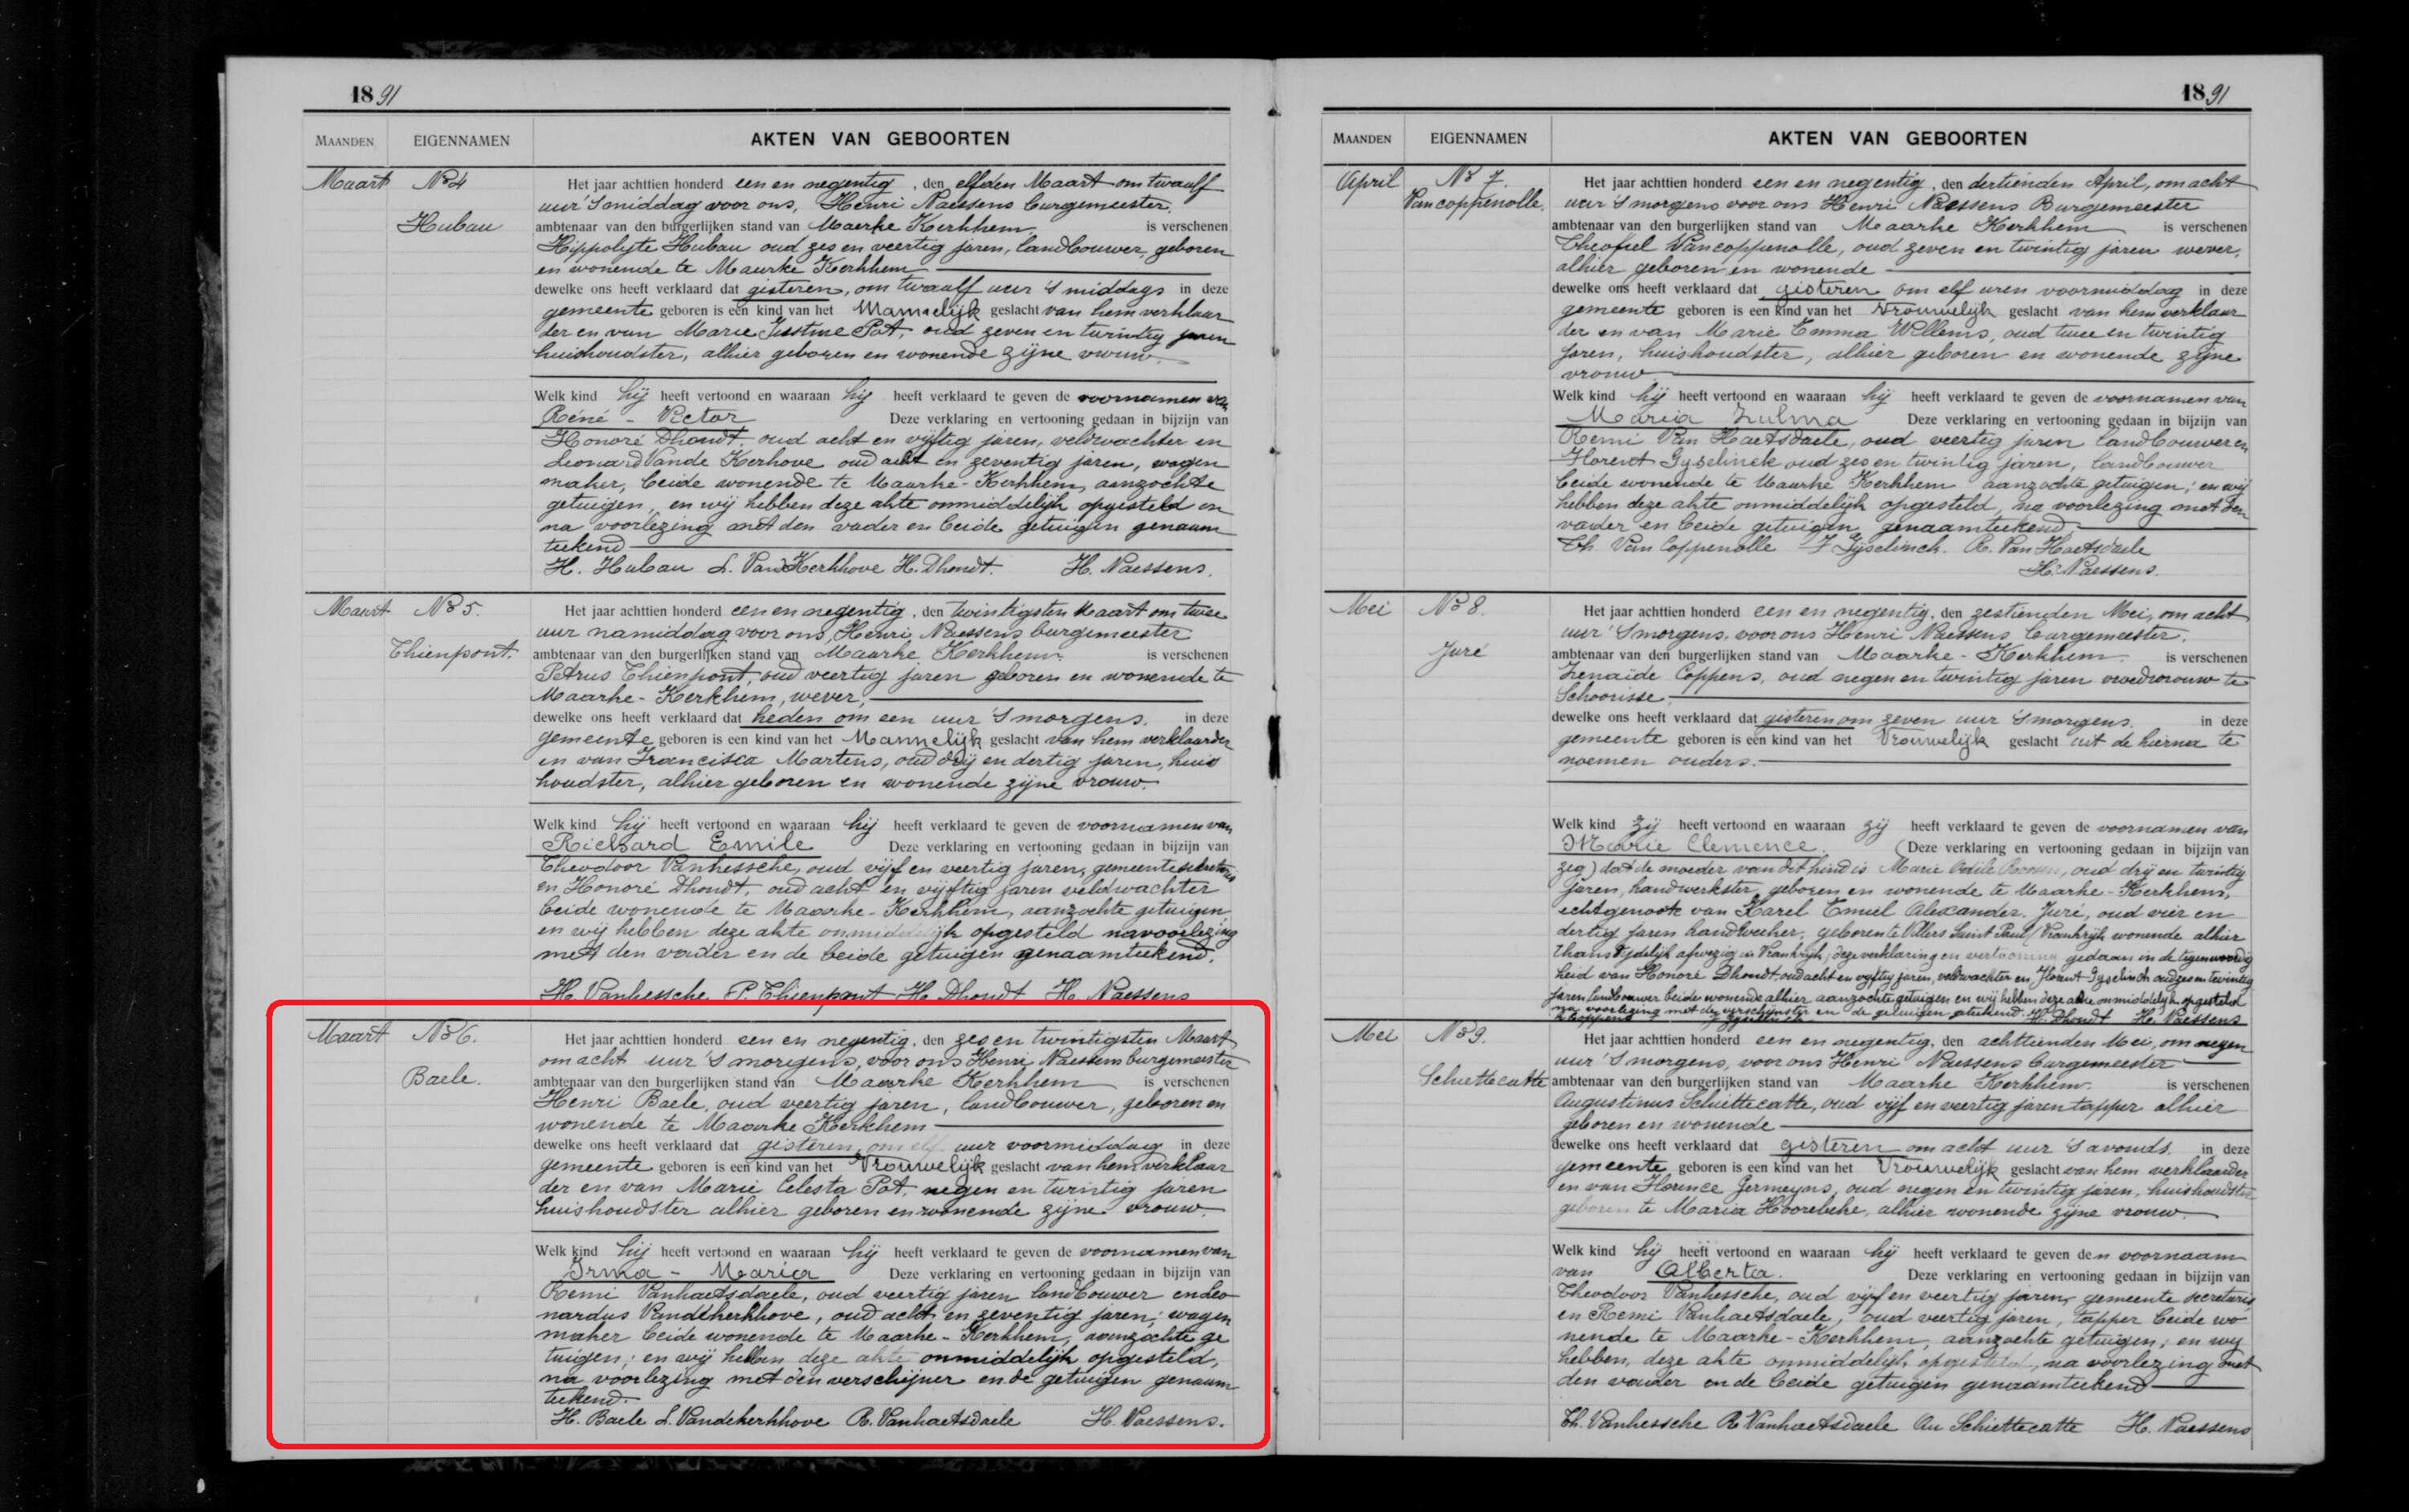 1891
MAANDEN EIGENNAMEN AKTEN VAN GEBOORTEN
Maart No 4
Hubau
Het jaar achttien honderd een en negentig, den elfden Maart om twaalf
uur 's middag voor ons, Henri Naessens burgemeester,
ambtenaar van den burgerlijken stand van Maerke Kerkhem, is verschenen
Hippolyte Hubau oud zes en veertig jaren, landbouwer, geboren
en wonende te Maarke Kerkhem
dewelke ons heeft verklaard dat gisteren, om twaalf uur 's middags in deze
gemeente geboren is een kind van het Mannelijk geslacht van hem verklaar
der en van Marie Justine Pot, oud zeven en twintig jaren
huishoudster, alhier geboren en wonende zijne vrouw.
Welk kind hij heeft vertoond en waaraan hij heeft verklaard te geven de voornamen van
Réné - Victor Deze verklaring en vertooning gedaan in bijzijn van
Honoré Dhondt, oud acht en vijftig jaren, veldwachter en
Leonard Vande Kerhove oud acht en zeventig jaren, wagen
maker, beide wonende te Maarke-Kerkhem, aanzochte
getuigen, en wij hebben deze akte onmiddelijk opgesteld en
na voorlezing met den vader en beide getuigen genaam
teekend
H. Hubau L. VandKerkhove H. Dhondt. H. Naessens.
Maart No 5.
Thienpont.
Het jaar achttien honderd een en negentig, den twintigsten Maart om twee
uur namiddag voor ons, Henri Naessens burgemeester
ambtenaar van den burgerlijken stand van Maarke Kerkhem. is verschenen
Petrus Thienpont, oud veertig jaren geboren en wonende te
Maarke-Kerkhem, wever,
dewelke ons heeft verklaard dat heden om een uur 's morgens. in deze
gemeente geboren is een kind van het Mannelijk geslacht van hem verklaarder
en van Francisca Martens, oud drij en dertig jaren, huis
houdster, alhier geboren en wonende zijne vrouw.
Welk kind hij heeft vertoond en waaraan hij heeft verklaard te geven de voornamen van
Richard Emile Deze verklaring en vertooning gedaan in bijzijn van
Theodoor Vanhessche, oud vijf en veertig jaren, gemeentesecretaris
en Honoré Dhondt, oud acht en vijftig jaren veldwachter
beide wonende te Maarke-Kerkhem, aanzochte getuigen,
en wij hebben deze akte onmiddelijk opgesteld na voorlezing
met den vader en de beide getuigen genaamteekend.
H. Vanhessche P. Thienpont H. Dhondt H. Naessens
Maart No 6.
Baele.
Het jaar achttien honderd een en negentig, den zes en twintigsten Maart
om acht uur 's morgens, voor ons Henri Naessens burgemeester
ambtenaar van den burgerlijken stand van Maarke Kerkhem is verschenen
Henri Baele, oud veertig jaren, landbouwer, geboren en
wonende te Maarke Kerkhem
dewelke ons heeft verklaard dat gisteren om elf uur voormiddag in deze
gemeente geboren is een kind van het Vrouwelijk geslacht van hem verklaar
der en van Marie Celesta Pot, negen en twintig jaren
huishoudster alhier geboren en wonende zijne vrouw.
Welk kind hij heeft vertoond en waaraan hij heeft verklaard te geven de voornamen van
Irma - Maria Deze verklaring en vertooning gedaan in bijzijn van
Remi Vanhaetsdaele, oud veertig jaren landbouwer en Leo
nardus Vandekerkhove, oud acht en zeventig jaren, wagen
maker beide wonende te Maarke-Kerkhem, aanzochte ge
tuigen; en wij hebben deze akte onmiddelijk opgesteld,
na voorlezing met den verschijner en de getuigen genaam
teekend.
H. Baele L. Vandekerkhove R. Vanhaetsdaele H. Naessens.
1891
MAANDEN EIGENNAMEN AKTEN VAN GEBOORTEN
April No 7.
Van coppenolle.
Het jaar achttien honderd een en negentig, den dertienden April, om acht
uur 's morgens voor ons Henri Naessens Burgemeester
ambtenaar van den burgerlijken stand van Maarke Kerkhem is verschenen
Theofiel Vancoppenolle, oud zeven en twintig jaren wever,
alhier geboren en wonende
dewelke ons heeft verklaard dat gisteren om elf uren voormiddag in deze
gemeente geboren is een kind van het Vrouwelijk geslacht van hem verklaar
der en van Marie Emma Willems, oud twee en twintig
jaren, huishoudster, alhier geboren en wonende zijne
vrouw
Welk kind hij heeft vertoond en waaraan hij heeft verklaard te geven de voornamen van
Maria Zulma Deze verklaring en vertooning gedaan in bijzijn van
Remi Van Haetsdaele, oud veertig jaren landbouwer en
Florent Gyselinck oud zes en twintig jaren, landbouwer
beide wonende te Maarke Kerkhem aanzochte getuigen; en wij
hebben deze akte onmiddelijk opgesteld, na voorlezing met den
vader en beide getuigen, genaamteekend
Th. Van Coppenolle F Gyselinck. R. Van Haetsdaele
H. Naessens.
Mei No 8.
Juré
Het jaar achttien honderd een en negentig, den zestienden Mei, om acht
uur 's morgens, voor ons Henri Naessens burgemeester.
ambtenaar van den burgerlijken stand van Maarke-Kerkhem. is verschenen
Zenaïde Coppens, oud negen en twintig jaren vroedvrouw te
Schoorisse,
dewelke ons heeft verklaard dat gisteren om zeven uur 's morgens. in deze
gemeente geboren is een kind van het Vrouwelijk geslacht uit de hierna te
noemen ouders.
Welk kind zij heeft vertoond en waaraan zij heeft verklaard te geven de voornamen van
Marie Clemence. (Deze verklaring en vertooning gedaan in bijzijn van
zeg) dat de moeder van dit kind is Marie Odile, oud drij en twintig
jaren, handwerkster, geboren en wonende te Maarke-Kerkhem,
echtgenoote van Karel Emiel Alexander Juré, oud vier en
dertig jaren handwerker, geboren te Villers Saint Paul (Vrankrijk wonende alhier
thans tijdelijk afwezig in Vrankrijk; deze verklaring en vertooning gedaan in de tegenwoordig
heid van Honoré Dhondt, oud acht en vyftig jaren, veldwachter en Florent Gyselinck oud zes en twintig
jaren landbouwer beide wonende alhier aanzochte getuigen en wij hebben deze akte onmiddelyk opgesteld
na voorlezing met de verschijnster en de getuigen geteekend. H. Dhondt H. Naessens
Z Coppens F Gyselinck
Mei No 9.
Schiettecatte
Het jaar achttien honderd een en negentig, den achttienden Mei, om negen
uur 's morgens, voor ons Henri Naessens burgemeester
ambtenaar van den burgerlijken stand van Maarke Kerkhem. is verschenen
Augustinus Schiettecatte, oud vijf en veertig jaren tapper alhier
geboren en wonende
dewelke ons heeft verklaard dat gisteren om acht uur 's avonds. in deze
gemeente geboren is een kind van het Vrouwelijk geslacht van hem verklaarder
en van Florence Germeyns, oud negen en twintig jaren, huishoudster
geboren te Maria Hoorebeke, alhier wonende zijne vrouw.
Welk kind hij heeft vertoond en waaraan hij heeft verklaard te geven den voornaam
van Alberta. Deze verklaring en vertooning gedaan in bijzijn van
Theodoor Vanhessche, oud vijf en veertig jaren, gemeente secretaris
en Remi Vanhaetsdaele, oud veertig jaren, tapper beide wo
nende te Maarke-Kerkhem, aanzochte getuigen; en wij
hebben, deze akte onmiddelijk opgesteld, na voorlezing met
den vader en de beide getuigen genaamteekend
Th. Vanhessche R Vanhaetsdaele Au Schiettecatte H. Naessens